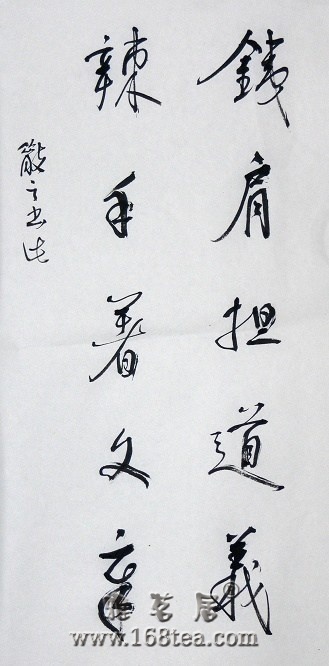 銕肩担道義
辣手著文章
之书法
茗居
www.168tea.com